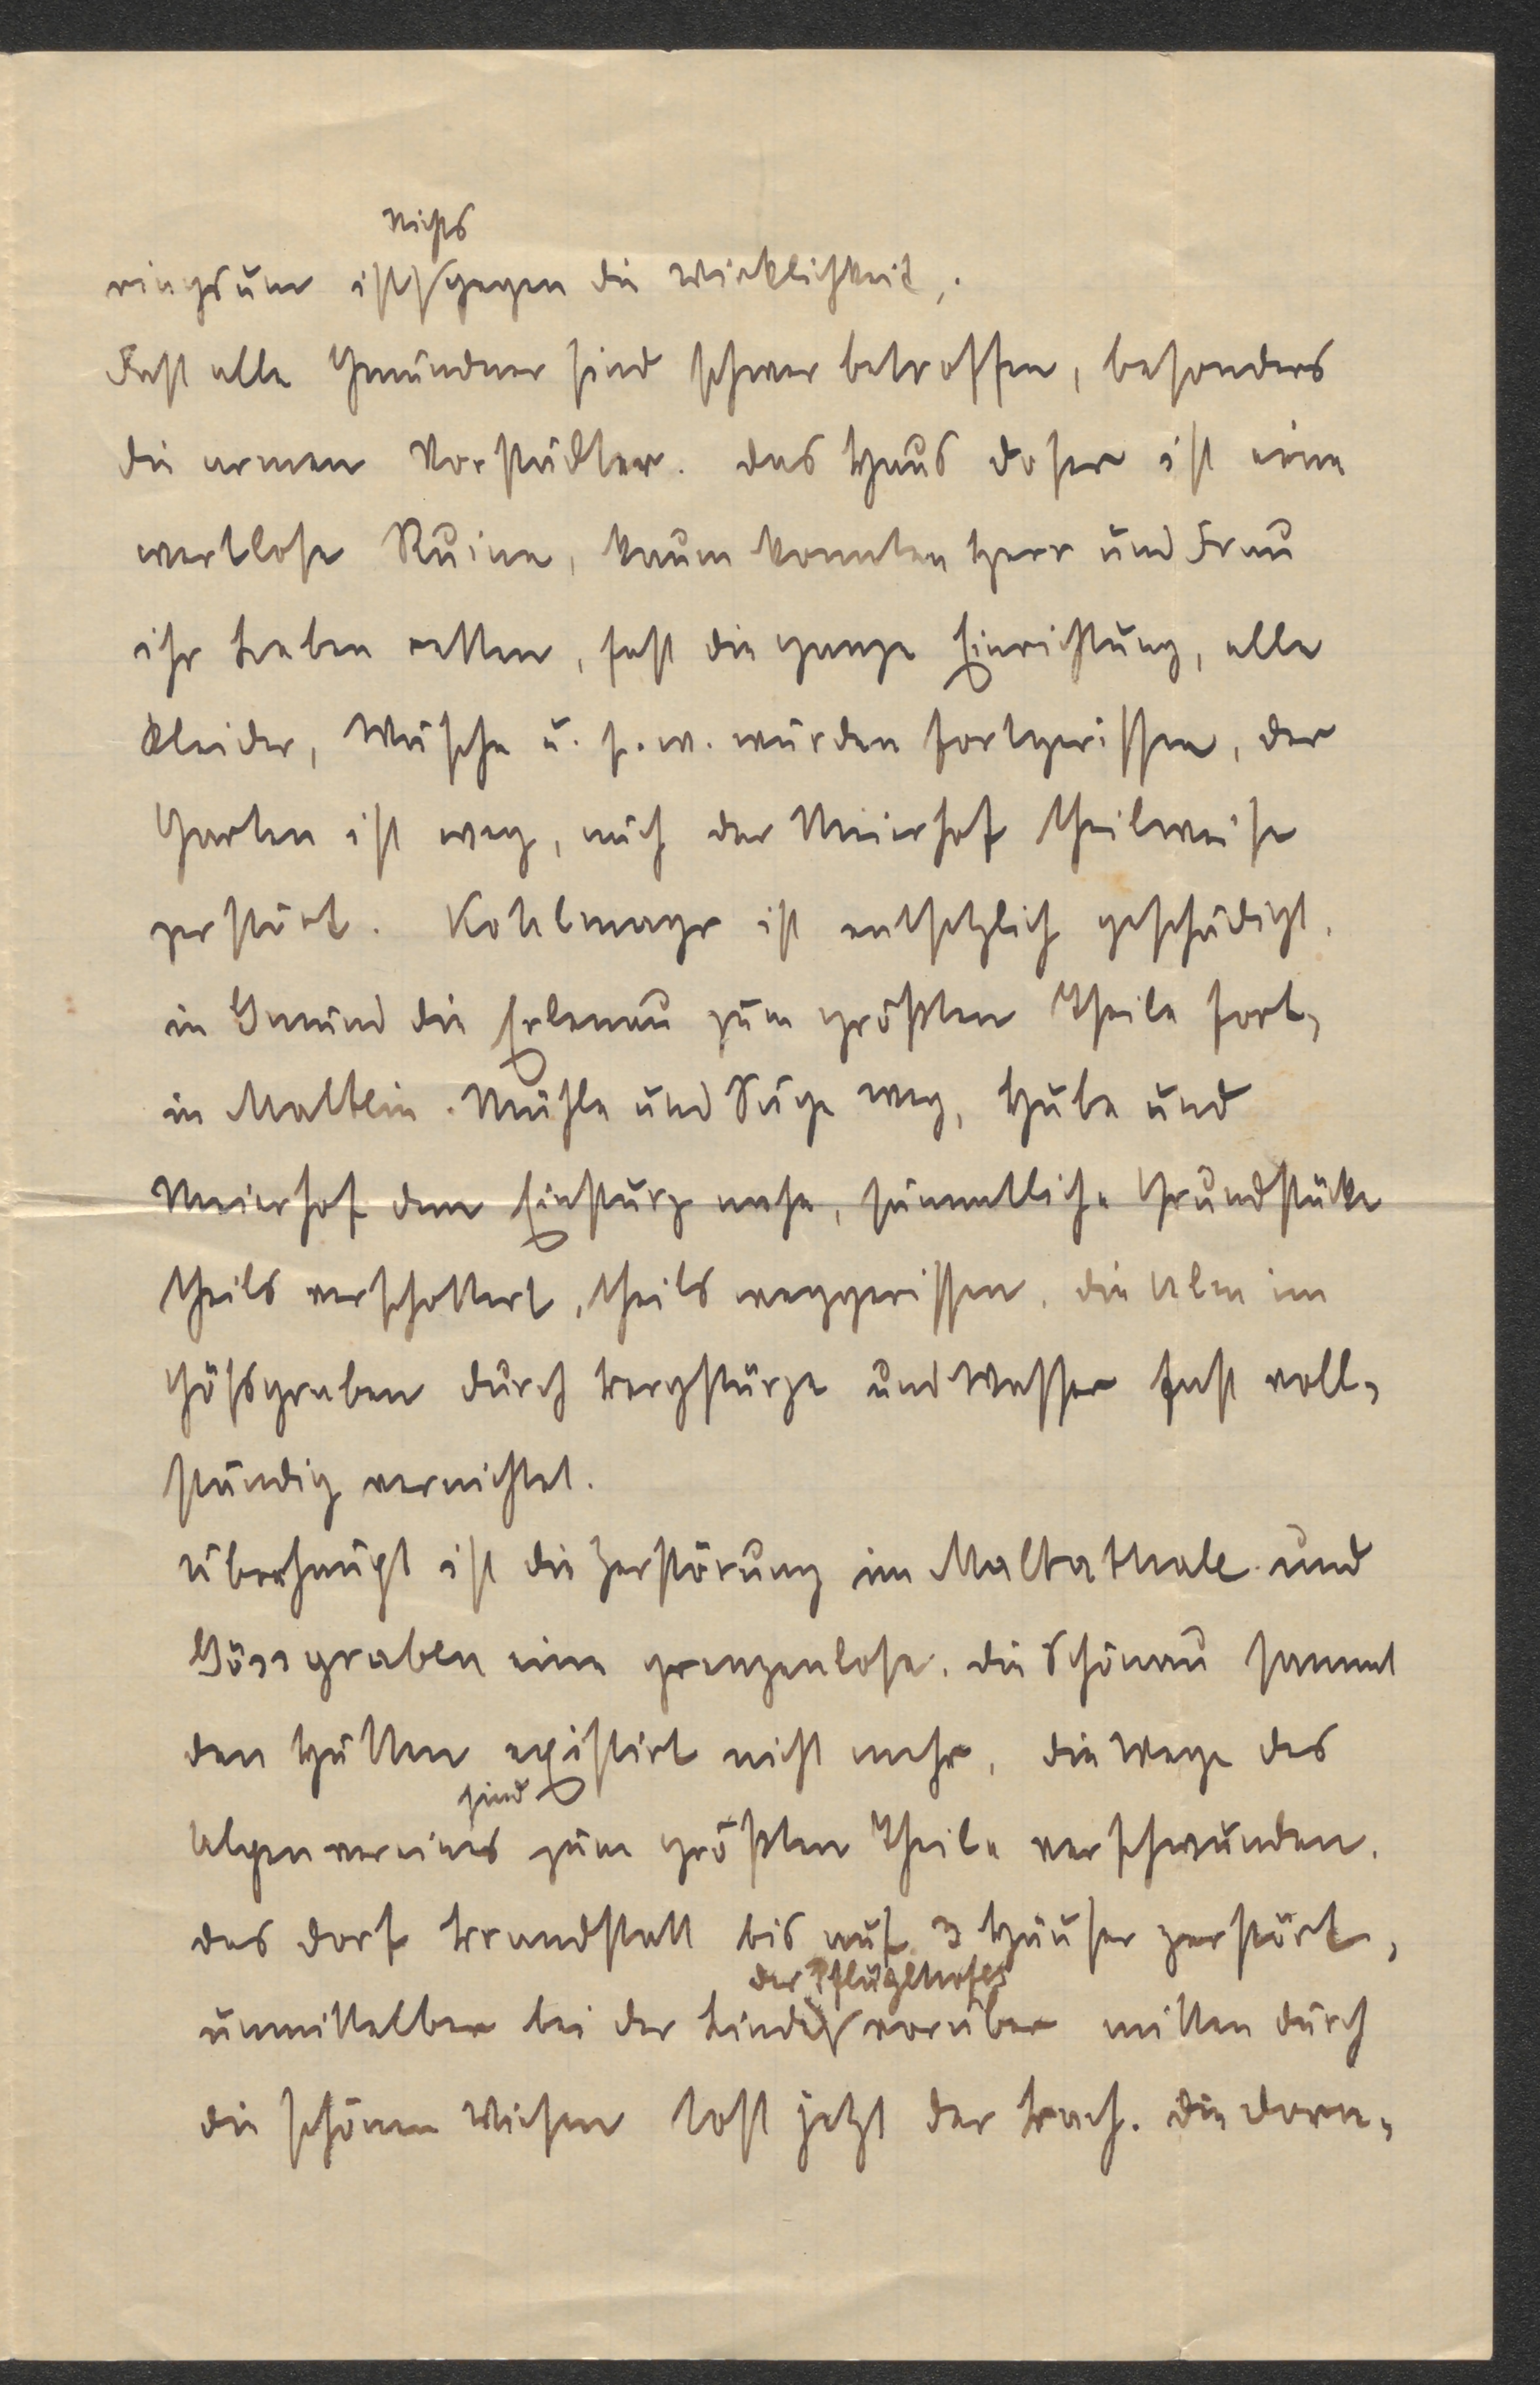 ringsum ist nichts gegen die Wirklichkeit.
Fast alle Gmündner sind schwer betroffen, besonders
die armen Vorstädter. Das Haus Doser ist eine
wertlose Ruine, kaum konnten Herr und Frau
ihr Leben retten, fast die ganze Einrichtung, alle
Kleider, Wäsche u. s. w. wurden fortgerissen, der
Garten ist weg, auch der Meierhof theilweise
zerstört. Kohlmayr ist entsetzlich geschädigt,
in Gmünd die Erlenau zum größten Theile fort,
in Maltein Mühle und Säge weg, Hube und
Meierhof dem Einsturz nahe, sämmtliche Grundstücke
theils verschottert, theils weggerissen, die Alm im
Gößgraben durch Bergstürze und Wasser fast voll-
ständig vernichtet.
Überhaupt ist die Zerstörung im Maltathale und
Gössgraben eine grenzenlose. Die Schönau sammt
den Hütten existirt nicht mehr, die Wege des
Alpenvereines sind zum größten Theile verschwunden.
Das Dorf Brandstatt bis auf 3 Häuser zerstört,
unmittelbar bei der Linde des Pflüglhofes vorüber mitten durch
die schönen Wiesen tost jetzt der Bach. Die Dorn-